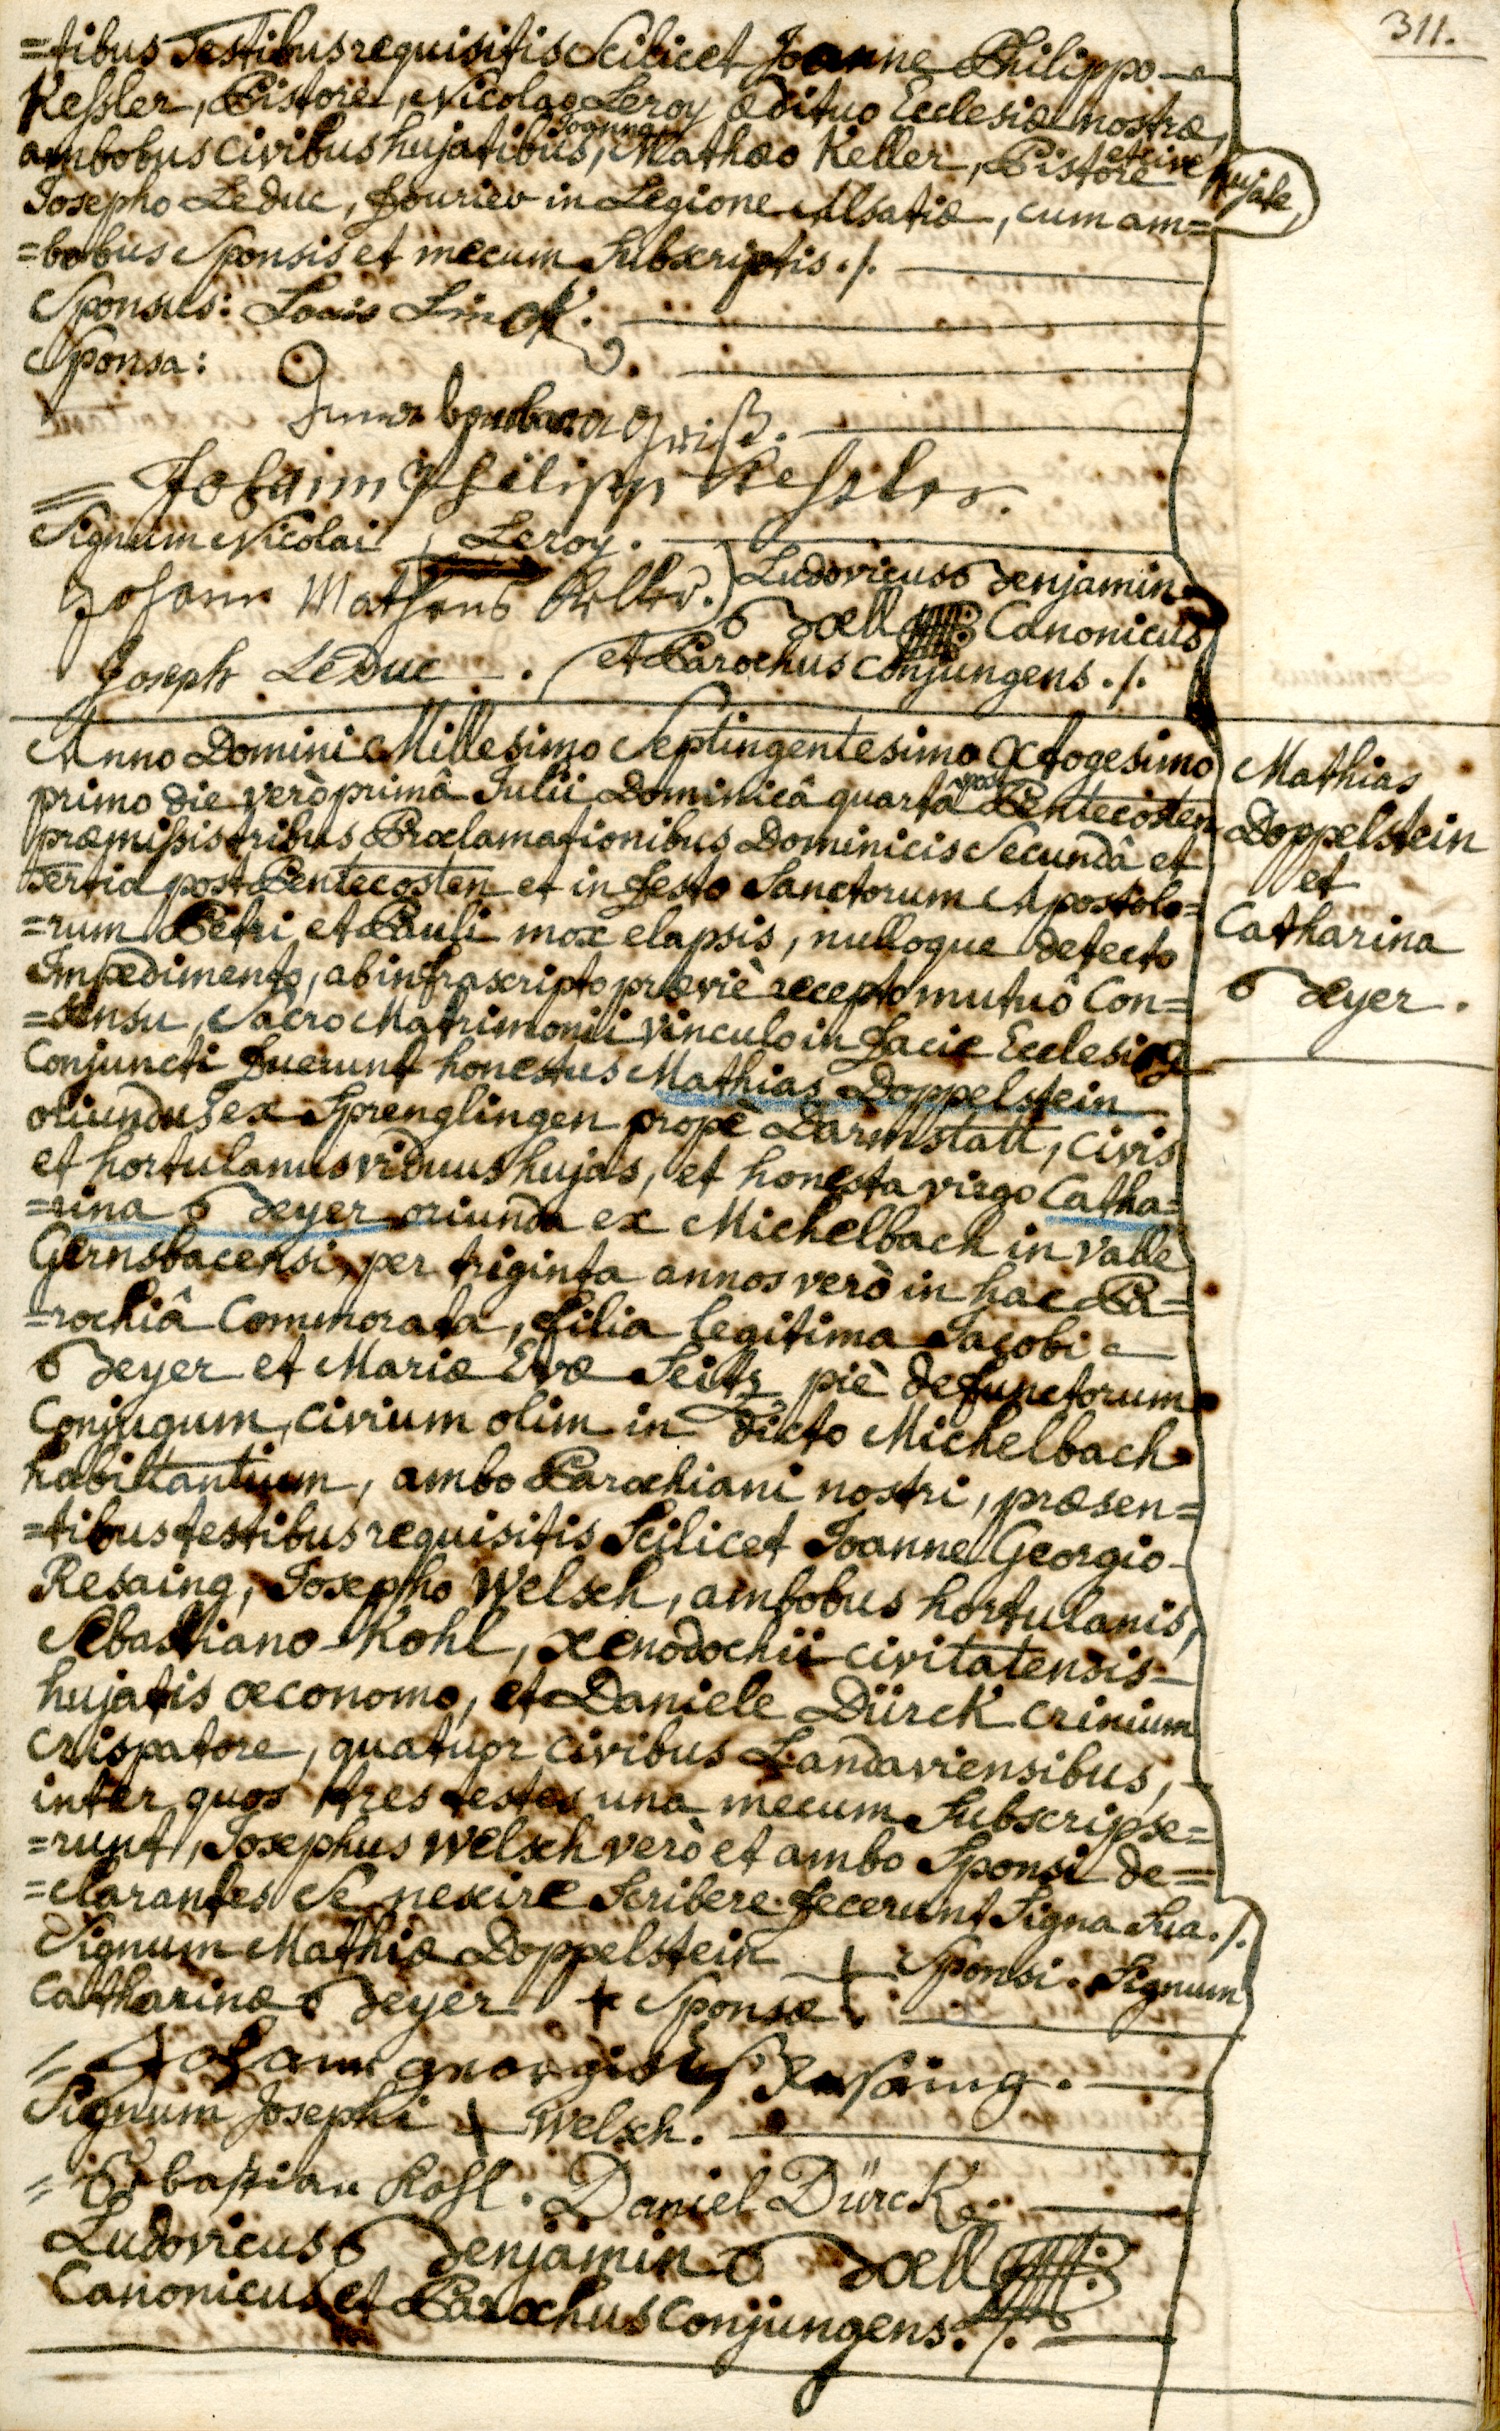 311.
=tibus Testibus requisitis Scilicet Joanne Philippo
Keßler, Pistore, Nicolao Leroy ædituo Ecclesiæ nostræ,
ambobus civibus hujatibus, Joanne Mathæo Keller, Pistore et cive hujate,
Josepho Leduc, fourier in Legione Alsatiæ, cum am=
=bobus Sponsis et mecum Subscriptis ./.
Sponsus: Louis Linck.
Sponsa:
Anna barbara
Johann Philipp Kessler.
Signum Nicolai + Leroy.
Johann Matheus Keller.
Joseph LeDuc.
Ludovicus Benjamin
Boell Canonicus
et Parochus conjungens ./.
Anno Domini Millesimo Septingentesimo Octogesimo
primo die verò primâ Julii Dominicâ quartâ post Pentecosten
præmißis tribus Proclamationibus Dominicis Secundâ et
tertiâ post Pentecosten et in festo Sanctorum Apostolo=
=rum Petri et Pauli mox elapsis, nulloque detecto
Impedimento, ab infrascripto præviè recepto mutuô Con=
=sensu, Sacro Matrimonii vinculo in facie Ecclesiæ
Conjuncti fuerunt honestus Mathias Doppelstein
oriundus ex Sprenglingen propè Darmstatt, civis
et hortulanus viduus hujas, et honesta virgo Catha=
=rina Beyer oriunda ex Michelbach in valle
Gernsbacensi, per triginta annos verò in hac Pa=
=rochiâ Commorata, filia legitima Jacobi
Beyer et Mariæ Evæ Seitz piè defunctorum
Conjugum, civium olim in dicto Michelbach
habitantium, ambo Parochiani nostri, præsen=
=tibus testibus requisitis Scilicet Joanne Georgio
Resaing, Josepho Welsch, ambobus hortulanis,
Sebastiano Kohl, xenodochii civitatensis
hujatis œconomo, et Daniele Dürck crinium
crispatore, quatuor civibus Landaviensibus,
inter quos tres testes una mecum Subscripse=
=runt, Josephus Welsch verò et ambo Sponsi de=
=clarantes Se nescire Scribere fecerunt Signa Sua ./.
Signum Mathiæ Doppelstein + Sponsi. Signum
Catharinæ Beyer + Sponsæ.
Johann georgius Resaing.
Signum Josephi + Welsch.
Sebastian Kohl. Daniel Dürck
Ludovicus Benjamin Boell
Canonicus et Parochus conjungens ./.
Mathias
Doppelstein
et
Catharina
Beyer.